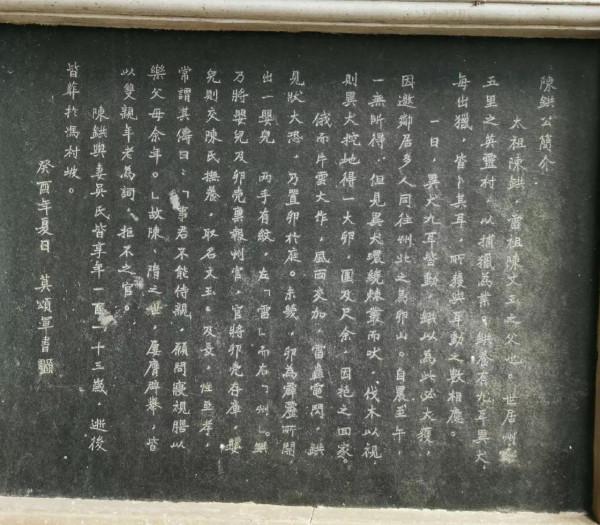 陳鉷公簡介
太祖陳鉷，雷祖陳文玉之父也。世居州
五里之英靈村，以捕獵為業。鉷養有九耳異犬，
每出獵，皆卜其耳，所獲與耳動之數相應。
一日，異犬九耳皆動，鉷以為此必大獲，
因邀鄰居多人同往州北之烏卵山。自晨至午，
一無所得，但見異犬環繞棘叢而吠，伐木以視，
則異犬挖地得一大卵，圍及尺余，因抱之回家。
俄而片雲大作，風雨交加，雷轟電閃，鉷
見狀大恐，乃置卵於庭。未幾，卵為霹靂所開，
出一嬰兒，兩手有紋，左「雷」而右「州」。鉷
乃將嬰兒及卵壳稟報州官，官將卵壳存庫，嬰
兒則交陳氏撫養，取名文玉。及長，性至孝，
常謂其儔曰：「事君不能侍親，願問寢視膳以
樂父母余年。」故陳、隋之世，屢膺辟舉，皆
以雙親年老為詞，拒不之官。
陳鉷與妻吳氏皆享年一百一十三歲，逝後
皆葬於馮村坡。
癸酉年夏日 莫頌軍書